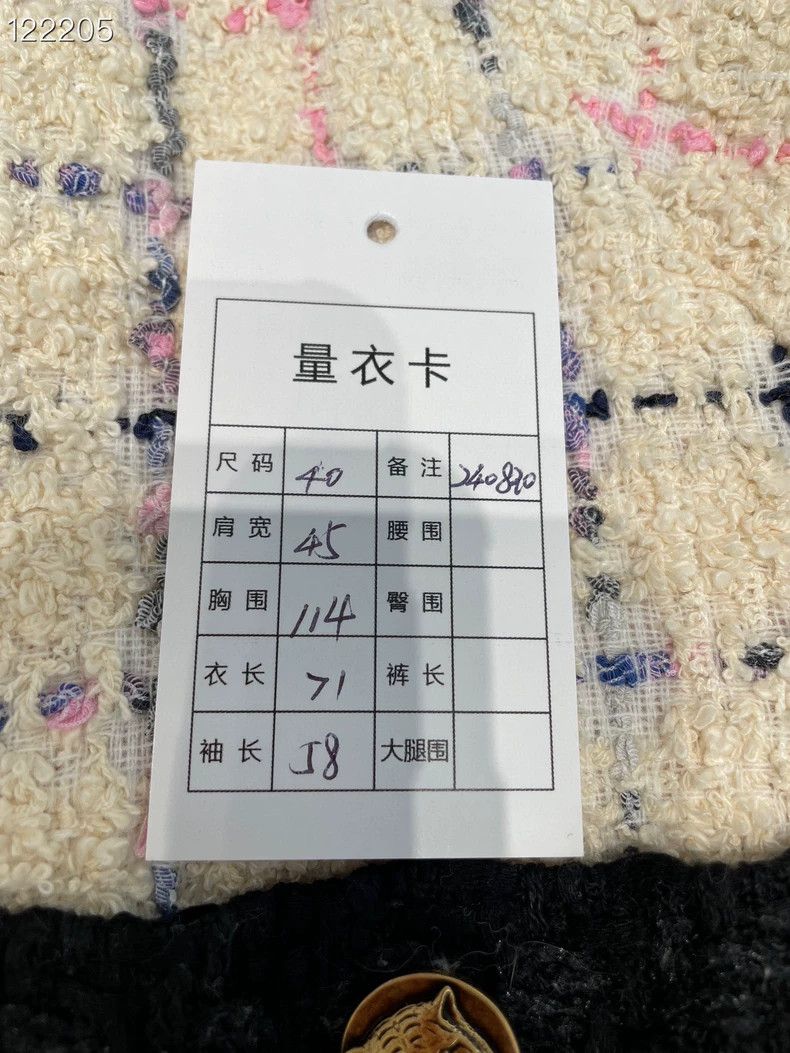 122205
量衣卡
尺码 40 备注 240830
肩宽 45 腰围
胸围 114 臀围
衣长 71 裤长
袖长 58 大腿围